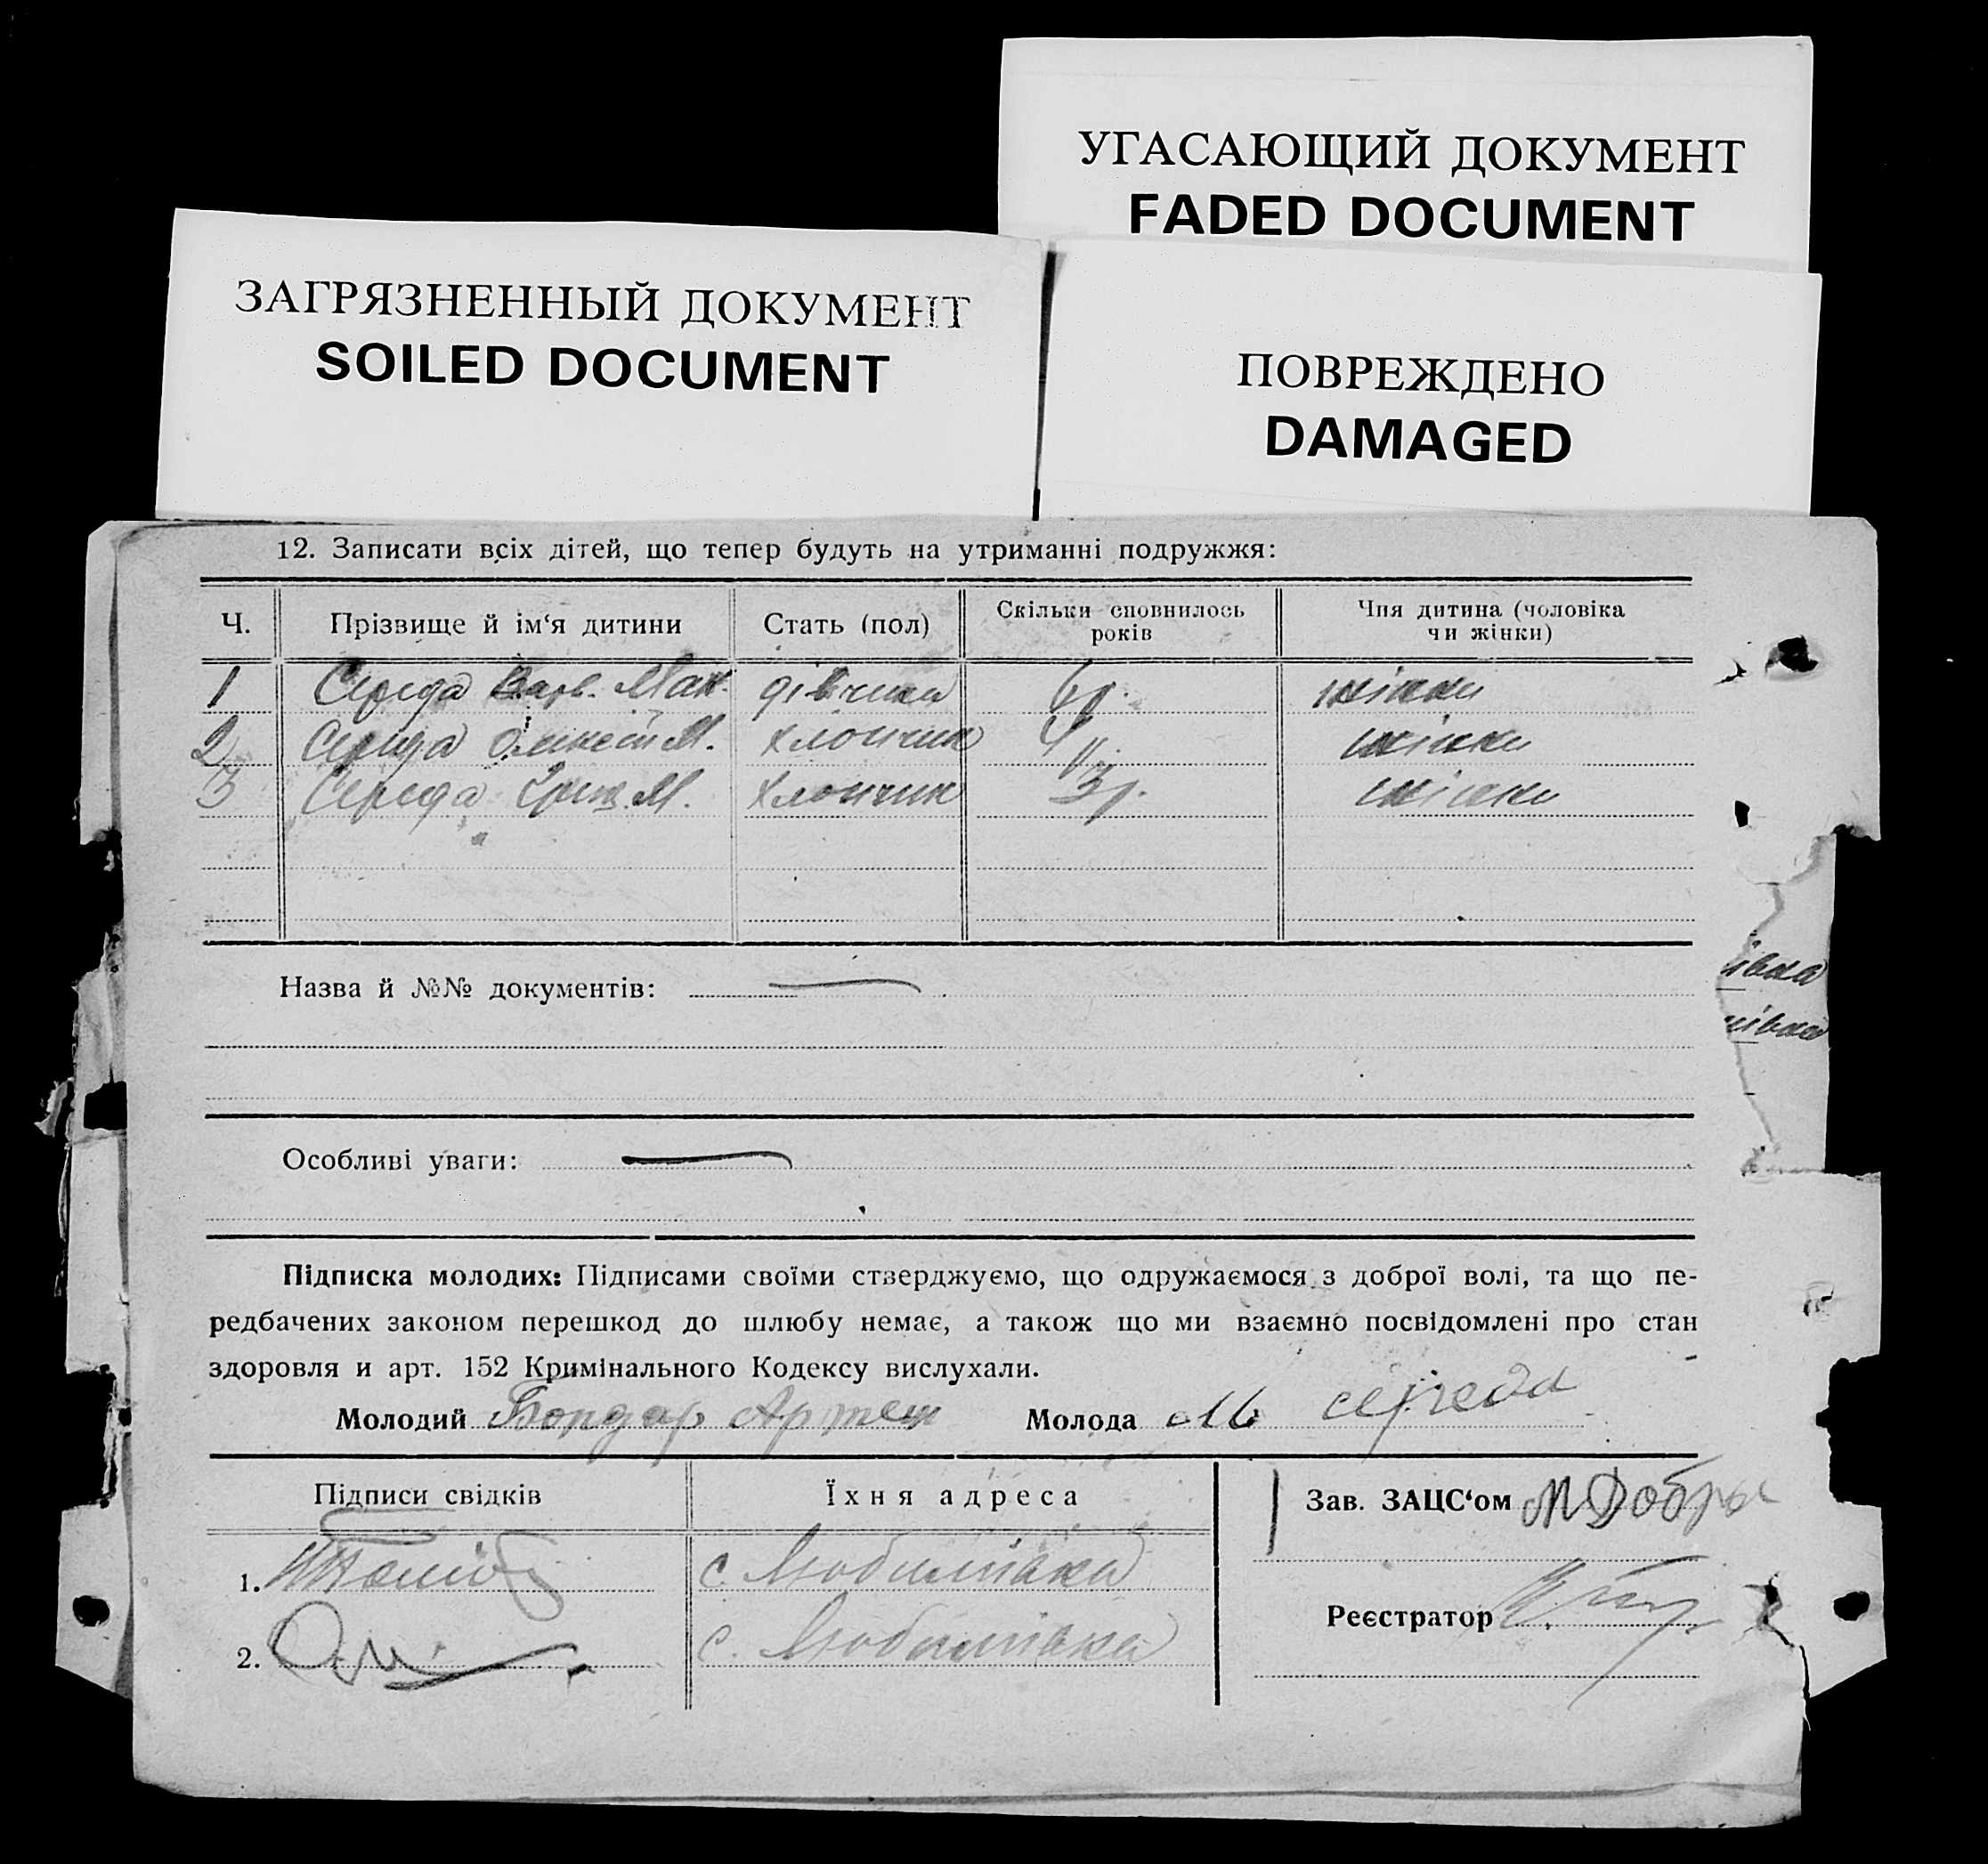 УГАСАЮЩИЙ ДОКУМЕНТ
FADED DOCUMENT
ЗАГРЯЗНЕННЫЙ ДОКУМЕНТ
SOILED DOCUMENT
ПОВРЕЖДЕНО
DAMAGED
12. Записати всіх дітей, що тепер будуть на утриманні подружжя:
Ч. Прізвище й ім‘я дитини Стать (пол) Скільки сповнилось років Чия дитина (чоловіка чи жінки)
1 Середа Варв. Мак. дівчина 6 р. жінки
2 Середа М. хлопчик 4 р. жінки
3 Середа Гриц. М. хлопчик 3 р. жінки
Назва й №№ документів:
івна
івна
Особливі уваги:
Підписка молодих: Підписами своїми стверджуємо, що одружаємося з доброї волі, та що пе-
редбачених законом перешкод до шлюбу немає, а також що ми взаємно посвідомлені про стан
здоровля и арт. 152 Кримінального Кодексу вислухали.
Молодий Бондар Артем Молода М Середа
Підписи свідків Їхня адреса Зав. ЗАЦС‘ом
1. с. Любимівка
Реєстратор
2. с. Любимівка